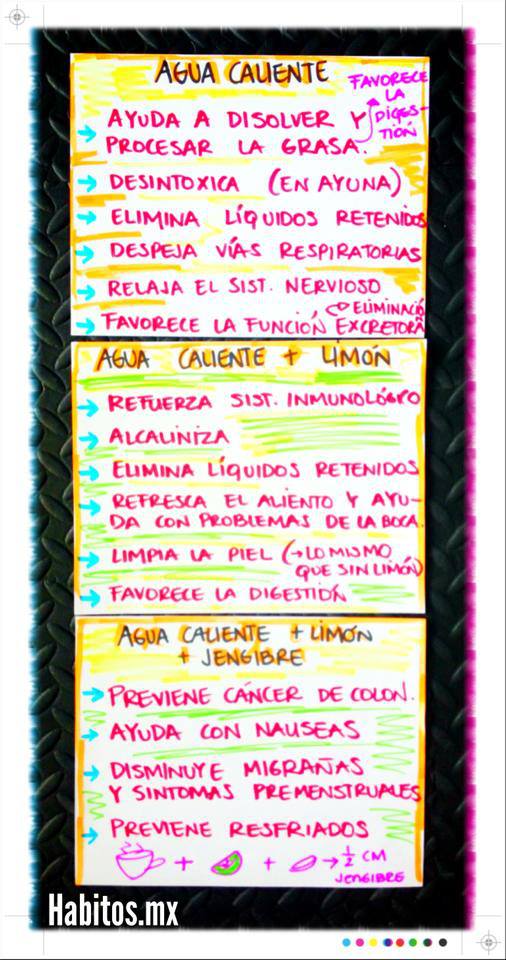 AGUA CALIENTE
FAVORECE
LA
DIGES-
TIÓN
→ AYUDA A DISOLVER Y
PROCESAR LA GRASA.
→ DESINTOXICA (EN AYUNA)
→ ELIMINA LÍQUIDOS RETENIDOS
→ DESPEJA VÍAS RESPIRATORIAS
→ RELAJA EL SIST. NERVIOSO
ELIMINACIÓ
→ FAVORECE LA FUNCIÓN EXCRETORA
AGUA CALIENTE + LIMÓN
→ REFUERZA SIST. INMUNOLÓGICO
→ ALCALINIZA
→ ELIMINA LÍQUIDOS RETENIDOS
→ REFRESCA EL ALIENTO Y AYU-
DA CON PROBLEMAS DE LA BOCA.
→ LIMPIA LA PIEL (→ LO MISMO
QUE SIN LIMÓN)
→ FAVORECE LA DIGESTIÓN
AGUA CALIENTE + LIMÓN
+ JENGIBRE
→ PREVIENE CÁNCER DE COLON.
→ AYUDA CON NAUSEAS
→ DISMINUYE MIGRAÑAS
Y SINTOMAS PREMENSTRUALES
→ PREVIENE RESFRIADOS
+ + → 1/2 CM
JENGIBRE
Habitos.mx